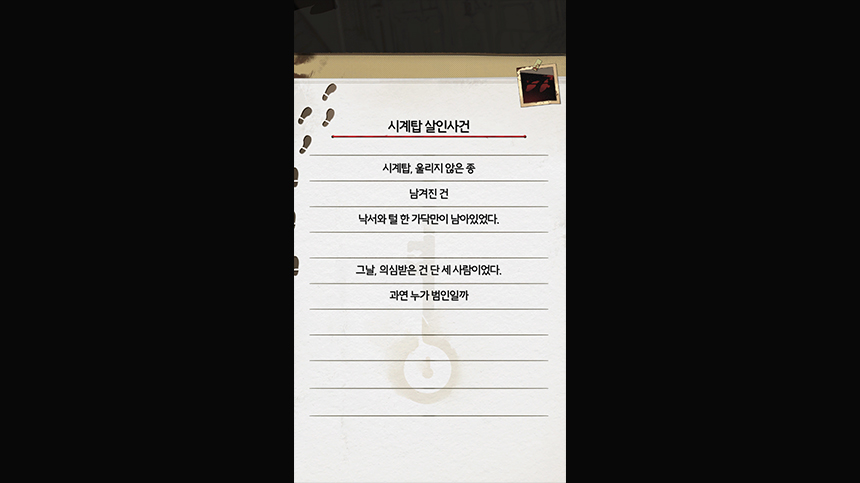 시계탑 살인사건
시계탑, 울리지 않은 종
남겨진 건
낙서와 털 한 가닥만이 남아있었다.
그날, 의심받은 건 단 세 사람이었다.
과연 누가 범인일까